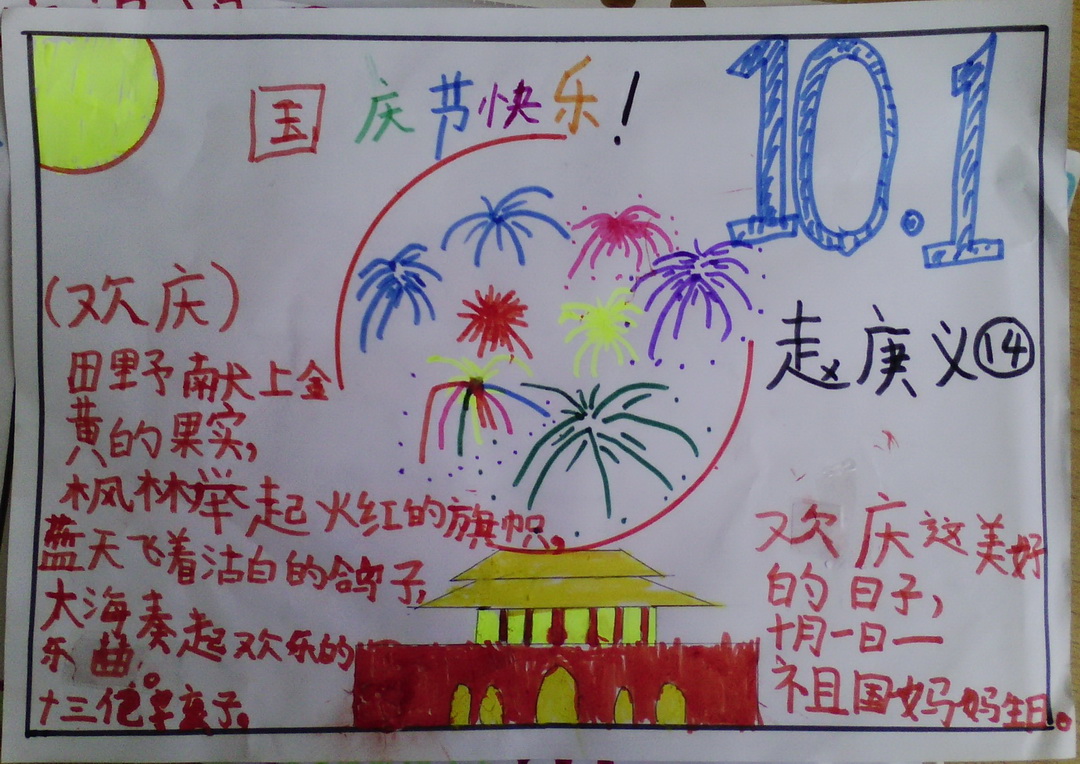 国庆节快乐!
10.1
赵庚义⑭
(欢庆)
田里予献上金
黄的果实,
枫林举起火红的旗帜,
蓝天飞着沽白的鸽子,
大海奏起欢乐的
乐曲。
十三亿孩子。
欢庆这美好
的日子,
十月一日一
祖国妈妈生日。